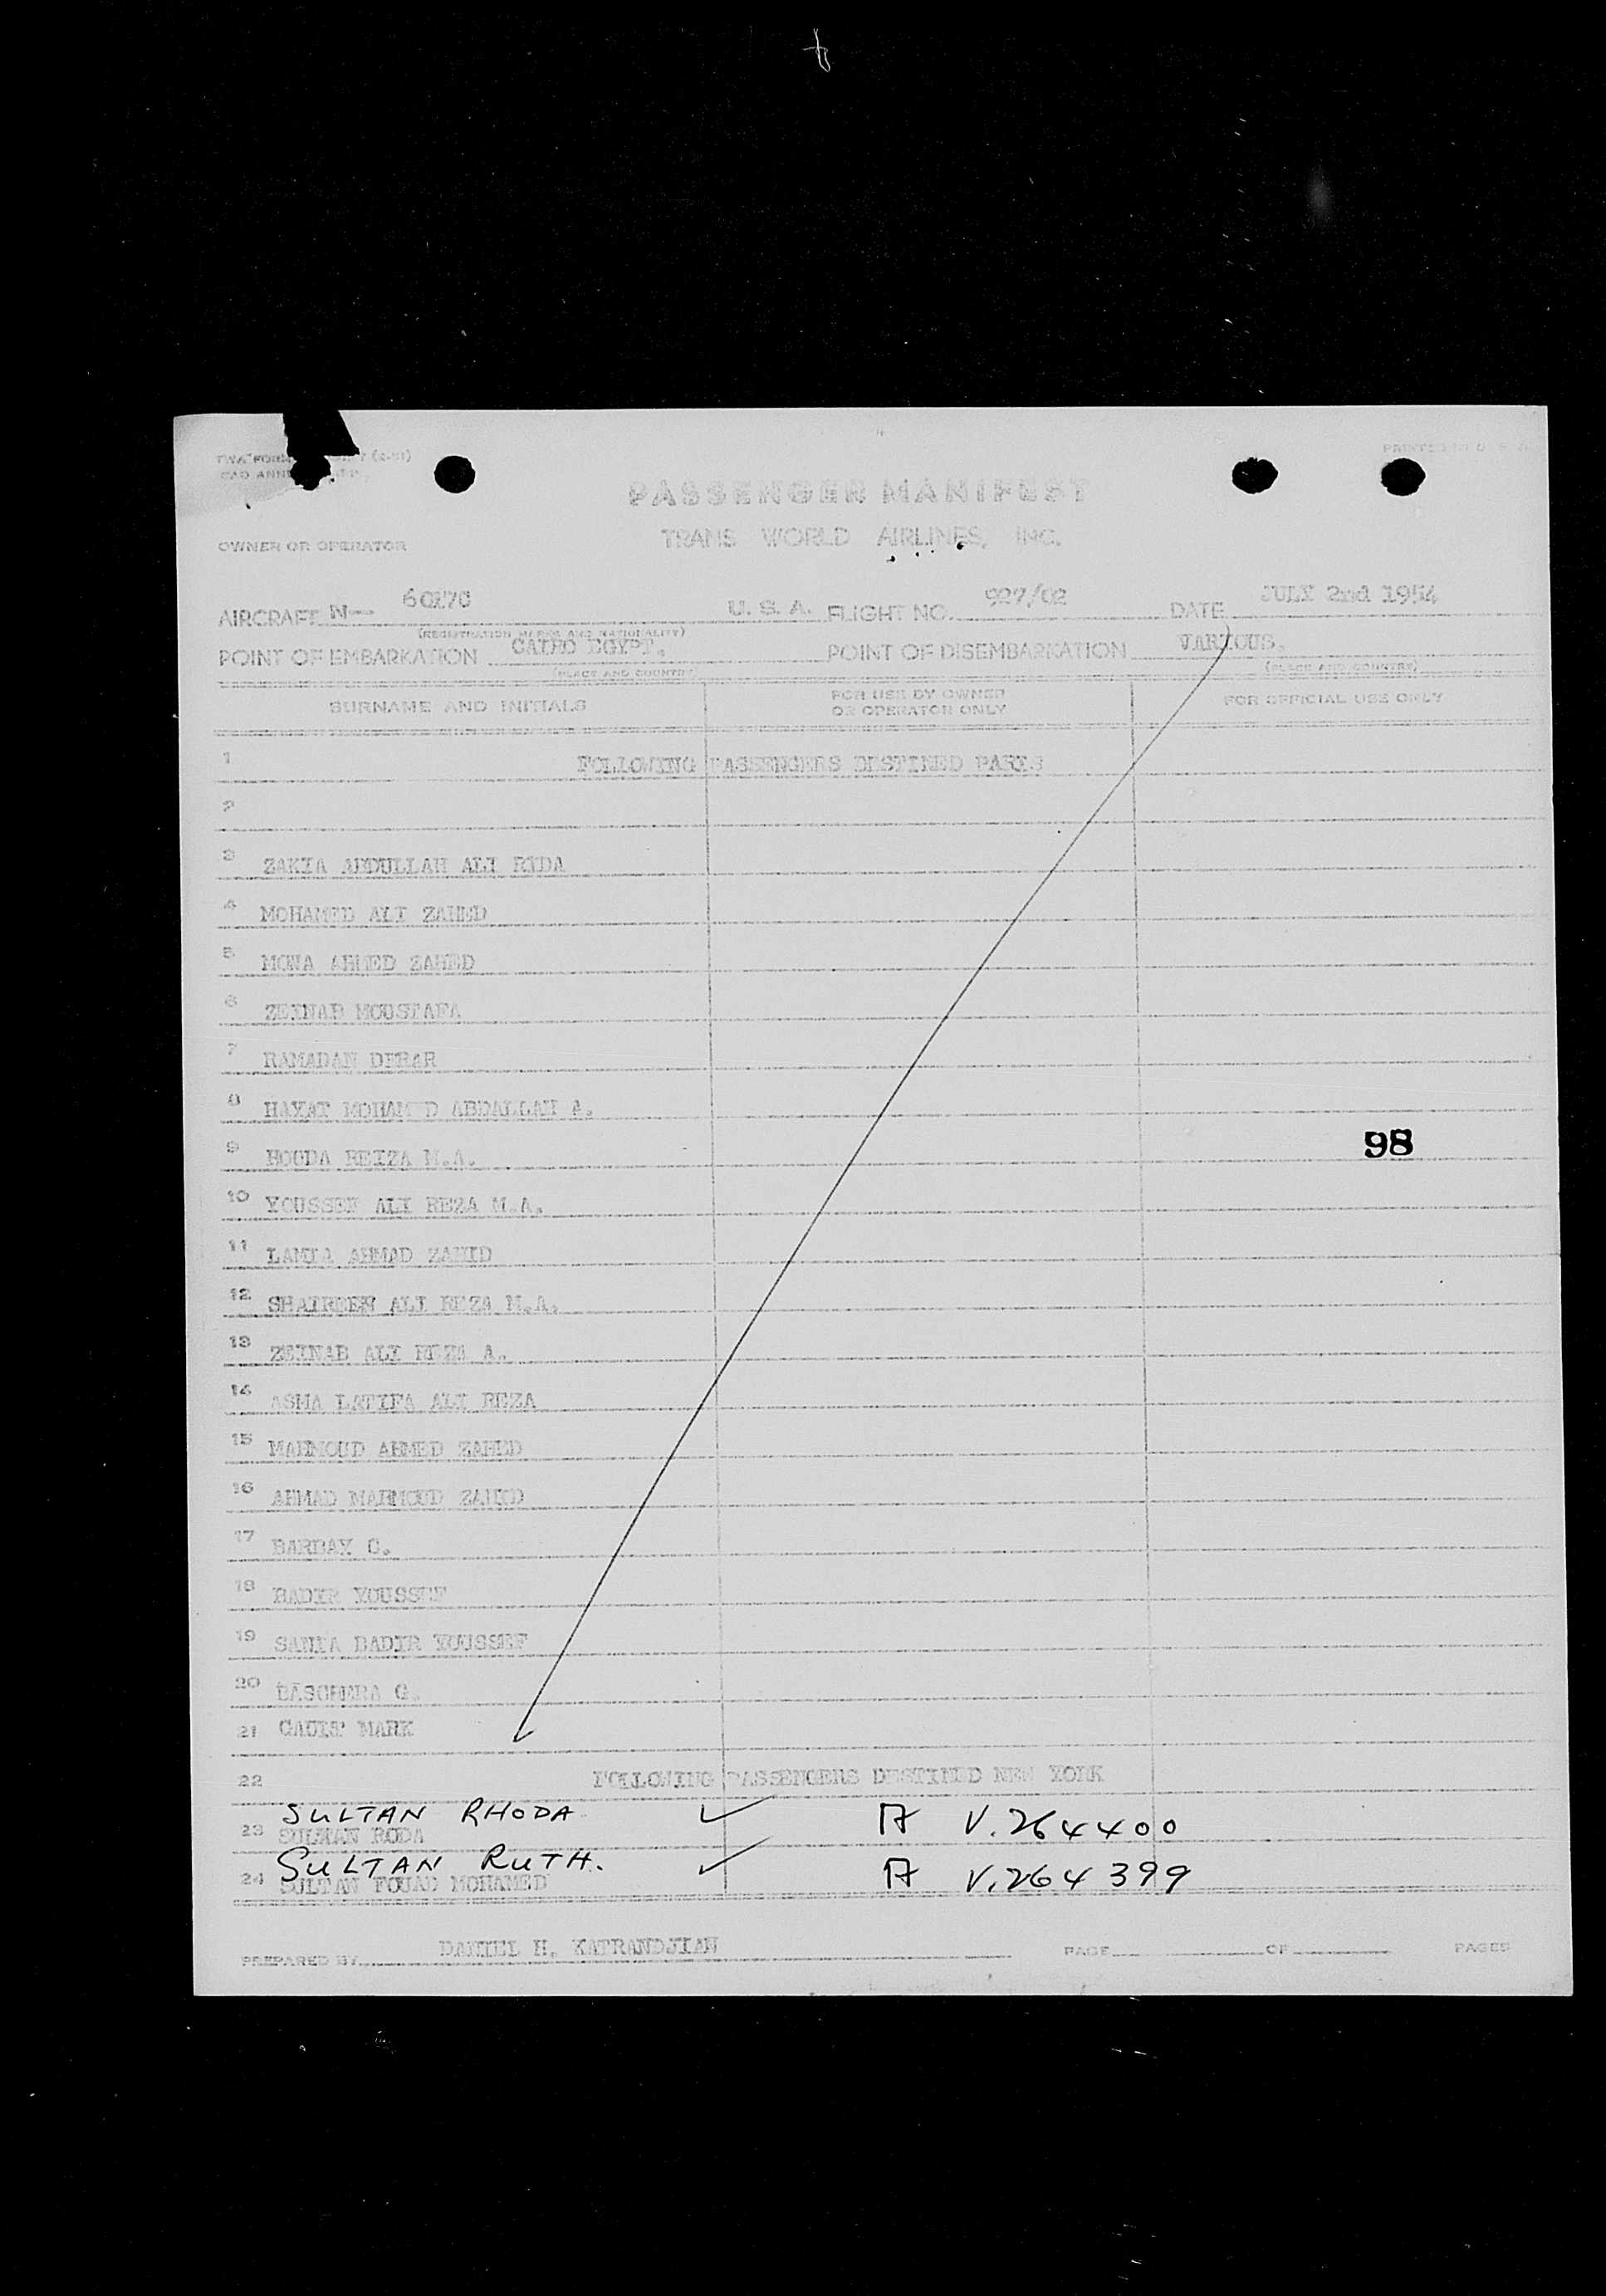 PRINTED IN U S A
TWA FORM (2-51)
CAO ANNEX
PASSENGER MANIFEST
OWNER OR OPERATOR TRANS WORLD AIRLINES, INC.
AIRCRAFT N— U. S. A. FLIGHT NO. 927/02 DATE JULY 2nd 1954
(REGISTRATION MARKS AND NATIONALITY)
POINT OF EMBARKATION CAIRO EGYPT. POINT OF DISEMBARKATION VARIOUS.
(PLACE AND COUNTRY) (PLACE AND COUNTRY)
SURNAME AND INITIALS FOR USE BY OWNER OR OPERATOR ONLY FOR OFFICIAL USE ONLY
1 FOLLOWING PASSENGERS DESTINED PARIS
2
3 ZAKIA ABDULLAH ALI RIDA
4 MOHAMED ALI ZAHED
5 MONA AHMED ZAHED
6 ZEINAB MOUSTAFA
7 RAMADAN DERAR
8 HAYAT MOHAMED ABDALLAH A.
9 HOUDA REIZA M.A. 98
10 YOUSSEF ALI REZA M.A.
11 LAMIA AHMAD ZAHID
12 SHAIREEN ALI REZA M.A.
13 ZEINAB ALI REZA A.
14 ASMA LATIFA ALI REZA
15 MAHMOUD AHMED ZAHED
16 AHMAD MAHMOUD ZAHID
17 BARDAY C.
18 BADIR YOUSSEF
19 SANIA BADIR YOUSSEF
20 BASCHERA G.
21 MARK
22 FOLLOWING PASSENGERS DESTINED NEW YORK
SULTAN RHODA ✓ A V.264400
23 SULTAN RODA
SULTAN RUTH. ✓ A V.264399
24 SULTAN FOUAD MOHAMED
PREPARED BY DANIEL H. KATRANDJIAN PAGE OF PAGES